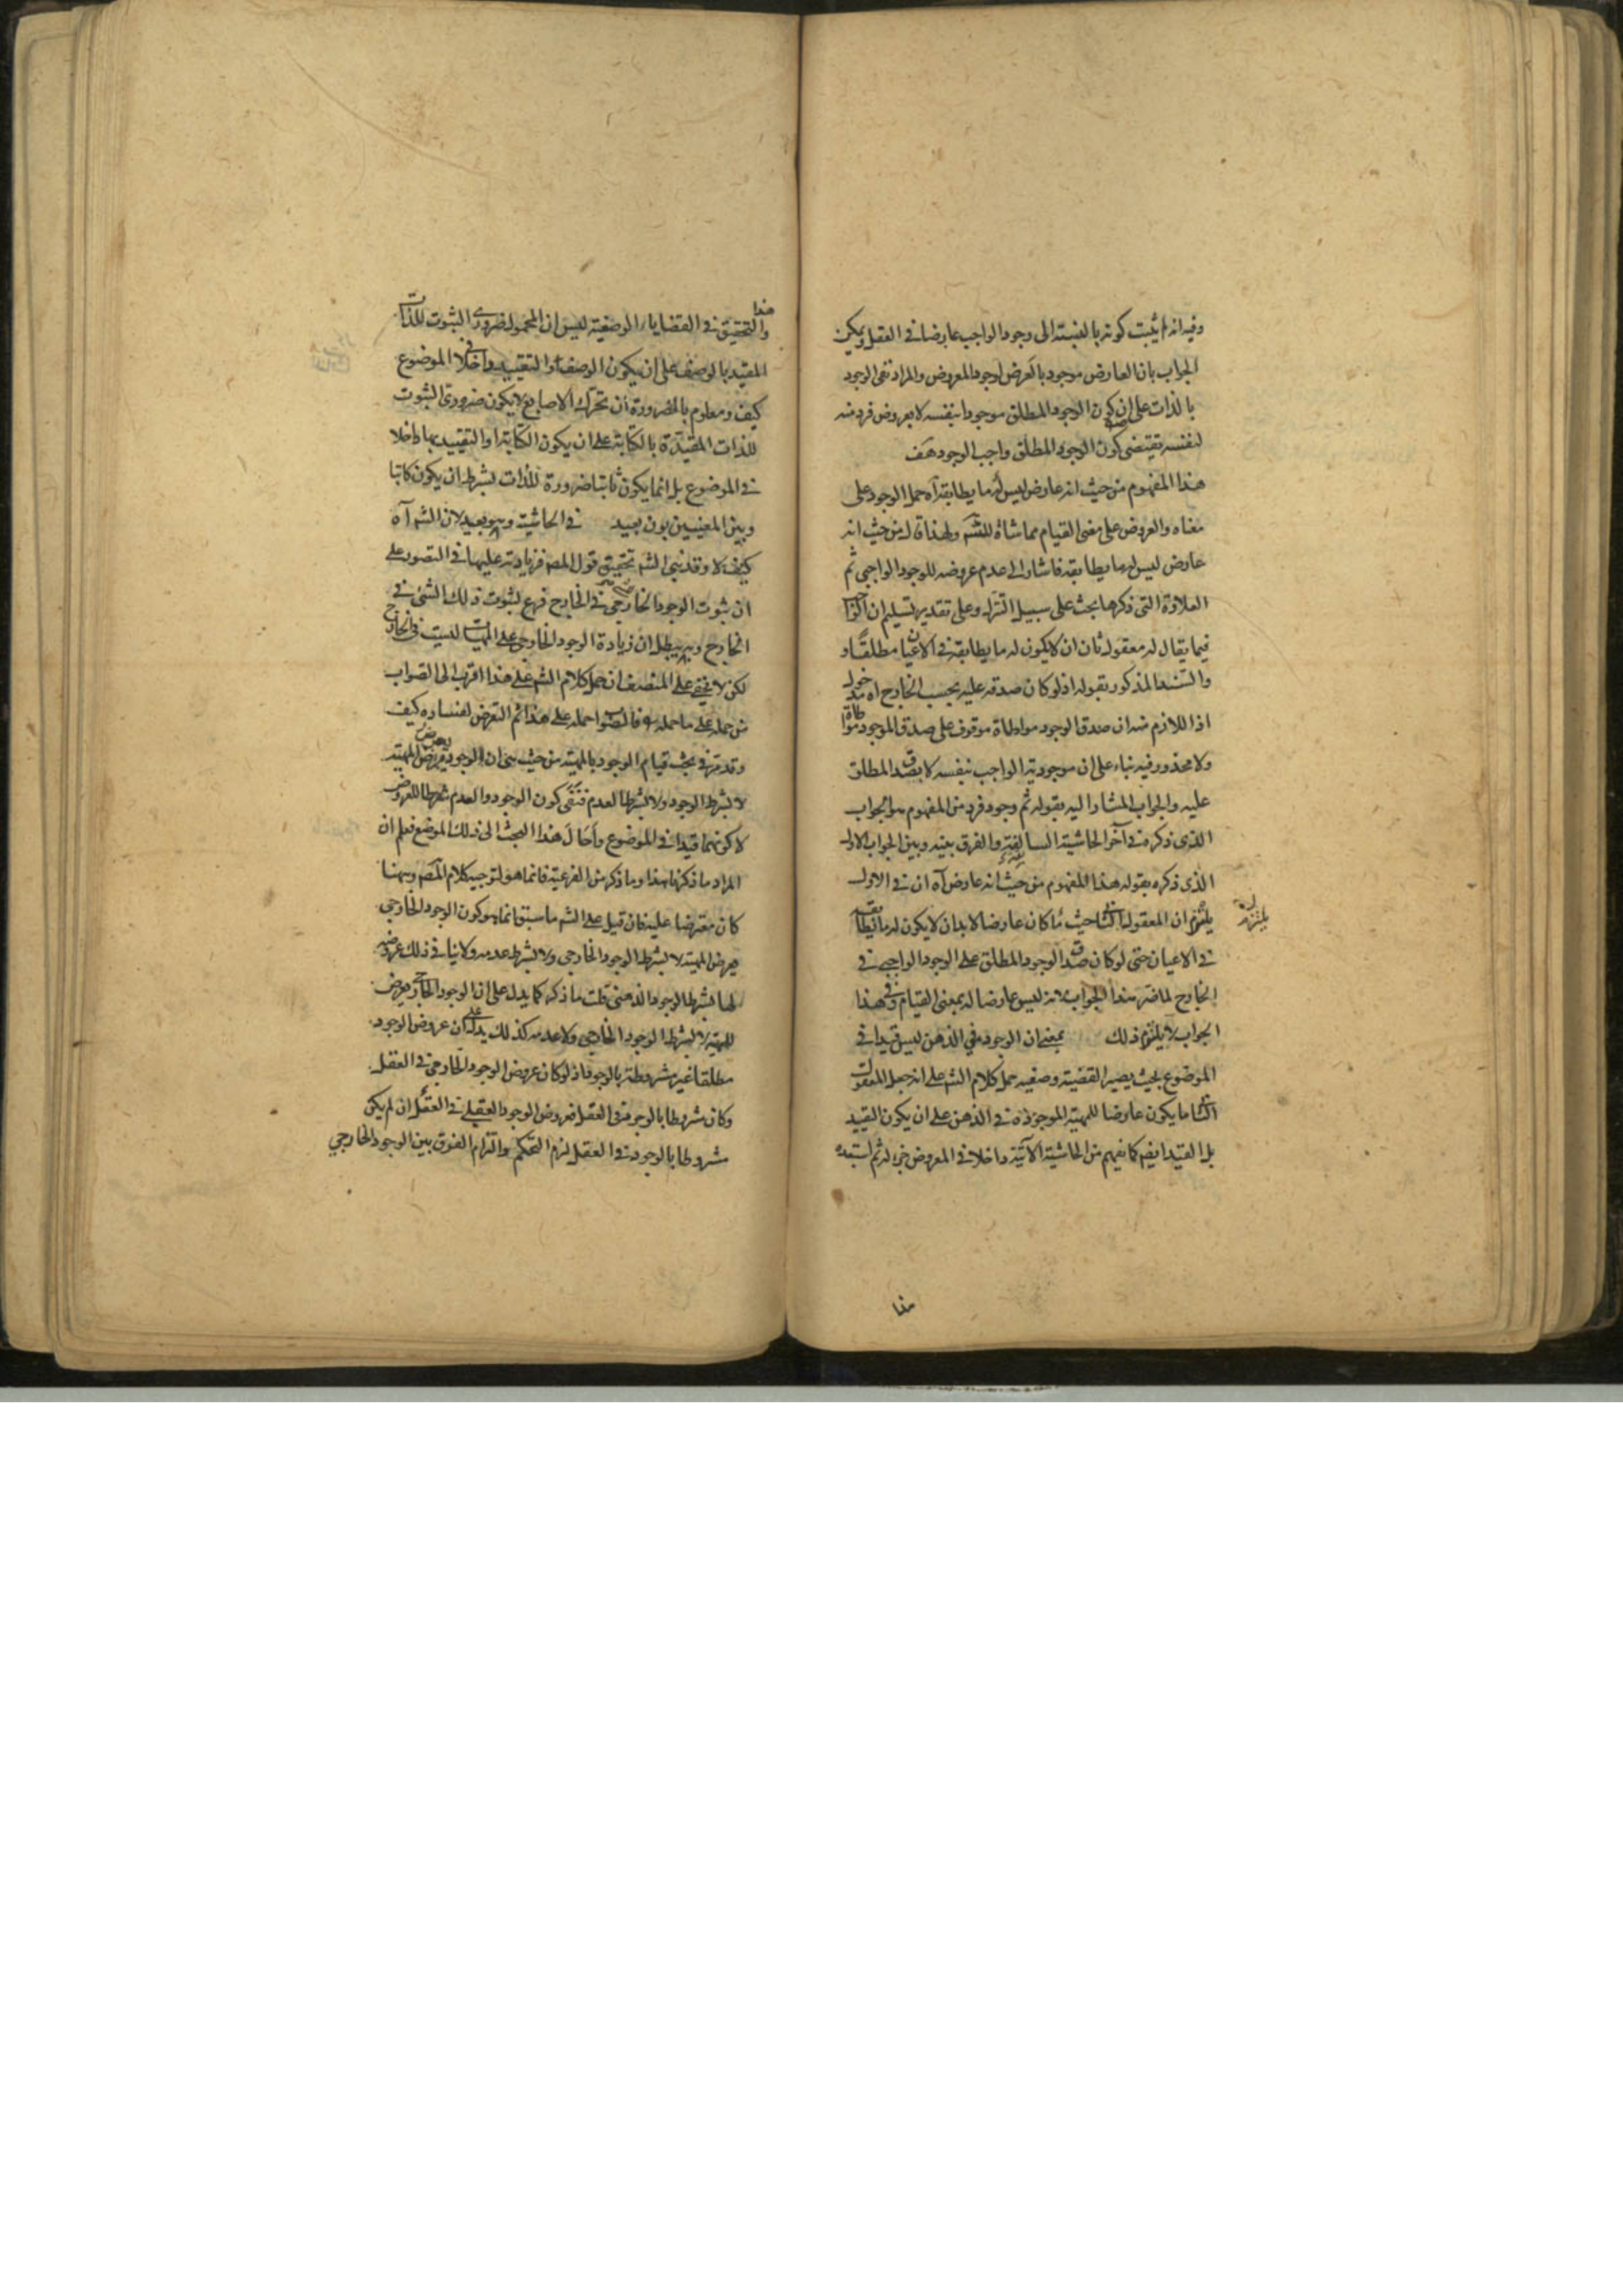 وفيه انه لم يثبت كونه بالنسبته الى وجود الواجب عارضا فى العقل ويمكن
الجواب بان العارض موجود بالعرض لوجود المعروض والمراد نفى الوجود
بالذات على ان كون الوجود المطلق موجودا بنفسه لا بعروض فرد منه
لنفسه يقتضى كون الوجود المطلق واجب الوجود هف
هذا المفهوم من حيث انه عارض ليس له ما يطابقه آه حمل الوجود على
معناه والعروض على معنى القيام مماشاة للشم ولهذا قال من حيث انه
عارض ليس له ما يطابقه فاشار الى عدم عروضه للوجود الواجبى ثم
العلاوة التى ذكرها بحث على سبيل التنزل وعلى تقدير تسليم ان
فيما يقال له معقول ثان ان لا يكون له ما يطابقه فى الاعيان مطلقا و
والسند المذكور بقوله اذ لو كان صدقه عليه بحسب الخارج آه
اذا اللازم منه ان صدق الوجود مواطاة موقوف على صدق الموجود مواطاة
ولا محذور فيه بناء على ان موجودية الواجب بنفسه لا بصدق المطلق
عليه والجواب المشار اليه بقوله ثم وجود فرد من المفهوم هو الجواب
الذى ذكره فى آخر الحاشية السابقة والفرق بينه وبين الجواب الاول
الذى ذكره بقوله هذا المفهوم من حيث انه عارض آه ان فى الاول
يلتزم ان المعقول الثانى حيث ما كان عارضا لا بد ان لا يكون له ما يطابقه
فى الاعيان حتى لو كان صدق الوجود المطلق على الوجود الواجبى فى
الخارج لما ضر هذا الجواب لانه ليس عارضا له بمعنى القيام وفى هذا
الجواب لا يلتزم ذلك بمعنى ان الوجود فى الذهن ليس قيدا فى
الموضوع بحيث يصير القضية وصفيه حمل كلام الشم على انه جعل المعقولات
الثانى ما يكون عارضا للمهية الموجودة فى الذهن على ان يكون التقييد
بل القيد ايضا كما يفهم من الحاشية الآتية داخلا فى المعروض ثم استبعده
هذا
والتحقيق فى القضايا الوصفية ليس ان المحمول ضرورى الثبوت للذات
المقيد بالوصف على ان يكون الوصف او التقييد داخلا فى الموضوع
كيف ومعلوم بالضرورة ان تحرك الاصابع لا يكون ضرورى الثبوت
للذات المقيدة بالكتابة على ان يكون الكتابة او التقييد بها داخلا
فى الموضوع بل انما يكون ثابتا ضرورة للذات بشرط ان يكون كاتبا
وبين المعنيين بون بعيد فى الحاشية وهو بعيد لان الشم آه
كيف لا وقد نبى الشم تحقيق قول المصم فزيادته عليها فى التصور على
ان ثبوت الوجود الخارجى فى الخارج فرع لثبوت ذلك الشئ فى
الخارج وبه يبطل ان زيادة الوجود الخارجى على المهية ليست فى الخارج
لكن لا يخفى على المنصف ان حمل كلام الشم على هذا اقرب الى الصواب
من حمله على ما حمله فالصواب حمله على هذا ثم التعرض لفساده كيف
وقد مر فى بحث قيام الوجود بالمهية من حيث هى ان الوجود يعرض المهية
لا بشرط الوجود ولا بشرط العدم فنفى كون الوجود والعدم شرطا للعروض
لا كونهما قيدا فى الموضوع واحال هذا البحث الى ذلك الموضع فعلم ان
المراد ما ذكرنا هذا وما ذكر من الفرعية فانما هو لتوجيه كلام المصم وههنا
كان معترضا عليه فان قيل على الشم ما سبق انما هو كون الوجود الخارجى
يعرض المهية لا بشرط الوجود الخارجى ولا بشرط عدمه ولا ينافى ذلك عروضه
لها بشرط الوجود الذهنى قلت ما ذكره كما يدل على ان الوجود الخارجى يعرض
للمهية لا بشرط الوجود الخارجى ولا عدمه كذلك يدل على ان عروض الوجود
مطلقا غير مشروطة بالوجود اذ لو كان عروض الوجود الخارجى فى العقل
وكان مشروطا بالوجود فى العقل فعروض الوجود العقلى فى العقل ان لم يكن
مشروطا بالوجود فى العقل لزم التحكم والتزام الفرق بين الوجود الخارجى